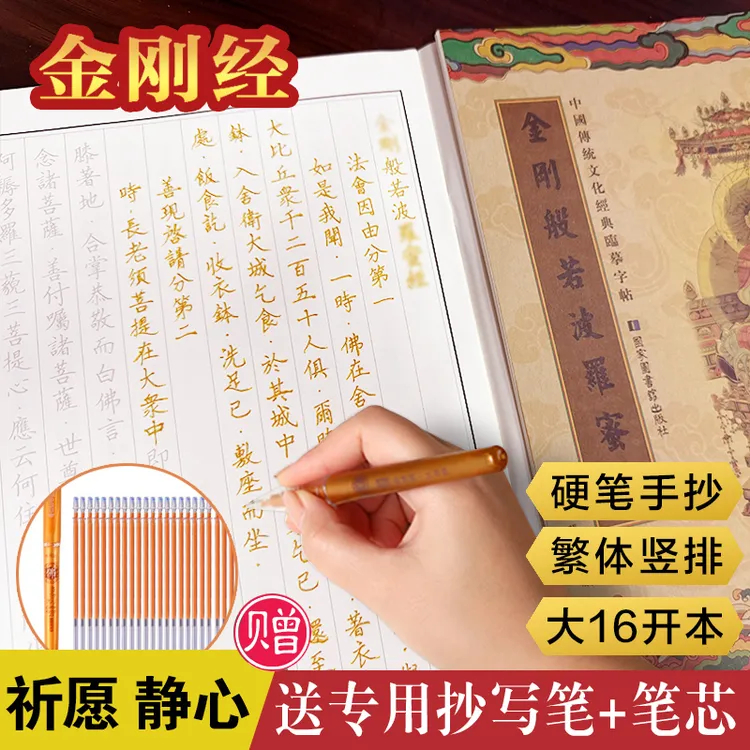 金刚经
般若波
法會因由分第一
如是我聞．一時．佛在舍
大比丘衆千二百五十人俱．爾
著衣
鉢．入舍衛大城乞食．於其城中
乞已．還至
處．飯食訖．收衣鉢．洗足已．敷座而坐．
善現啓請分第二
時．長老須菩提在大衆中即
膝著地．合掌恭敬而白佛言．
念諸菩薩 善付囑諸菩薩 世尊
耨多羅三藐三菩提心．應云何住
中國傳統文化經典臨摹字帖
金剛般若波羅蜜
國家圖書館出版社
硬笔手抄
繁体竖排
大16开本
赠
祈愿 静心
送专用抄写笔+笔芯